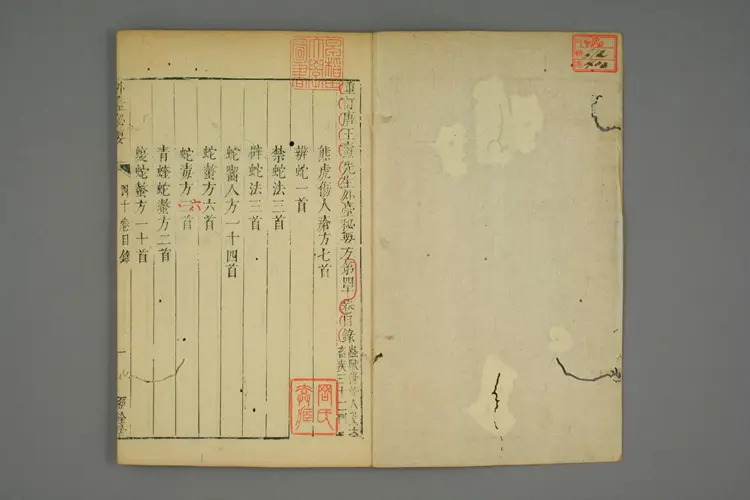 重訂唐王燾先生外臺秘要方第四十卷目錄
熊虎傷人瘡方七首
辨蛇一首
禁蛇法三首
辟蛇法三首
蛇嚙人方一十四首
蛇螫方六首
蛇毒方三首
六
青蝰蛇螫方二首
蝮蛇螫方一十首
外臺秘要
四十卷目錄
一